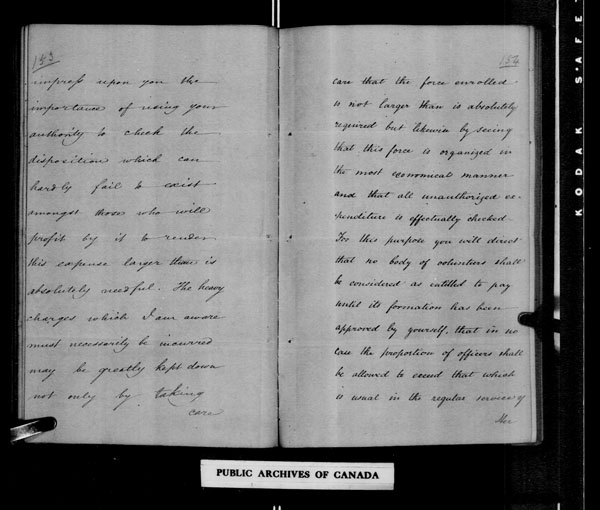 153
impress upon you the
importance of using your
authority to check the
disposition which can
hardly fail to exist
amongst those who will
profit by it to render
this expense larger than is
absolutely needful. The heavy
charges which I am aware
must necessarily be incurred
may be greatly kept down
not only by taking
care
154
care that the force enrolled
is not larger than is absolutely
required but likewise by seeing
that this force is organized in
the most economical manner
and that all unauthorized ex-
penditure is effectually checked.
For this purpose you will direct
that no body of volunteers shall
be considered as entitled to pay
until its formation has been
approved by yourself, that in no
case the proportion of officers shall
be allowed to exceed that which
is usual in the regular service of
Her
PUBLIC ARCHIVES OF CANADA
KODAK SAFE